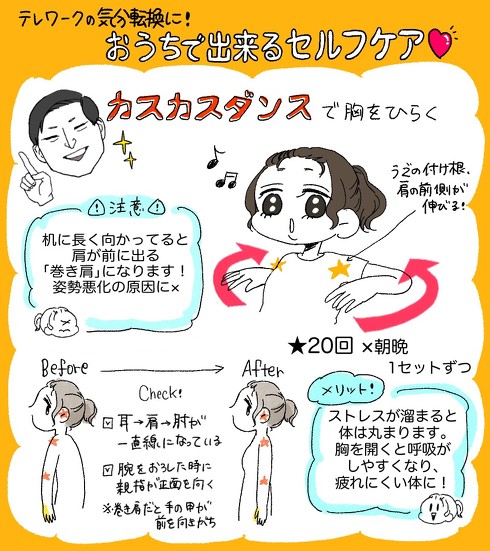 テレワークの気分転換に!
おうちで出来るセルフケア
カスカスダンスで胸をひらく
うでの付け根、
肩の前側が
伸びる!
注意
机に長く向かってると
肩が前に出る
「巻き肩」になります!
姿勢悪化の原因に×
★20回 ×朝晩
1セットずつ
Before
After
Check!
耳→肩→肘が
一直線になっている
腕をおろした時に
親指が正面を向く
※巻き肩だと手の甲が
前を向きがち
メリット!
ストレスが溜まると
体は丸まります。
胸を開くと呼吸が
しやすくなり、
疲れにくい体に!